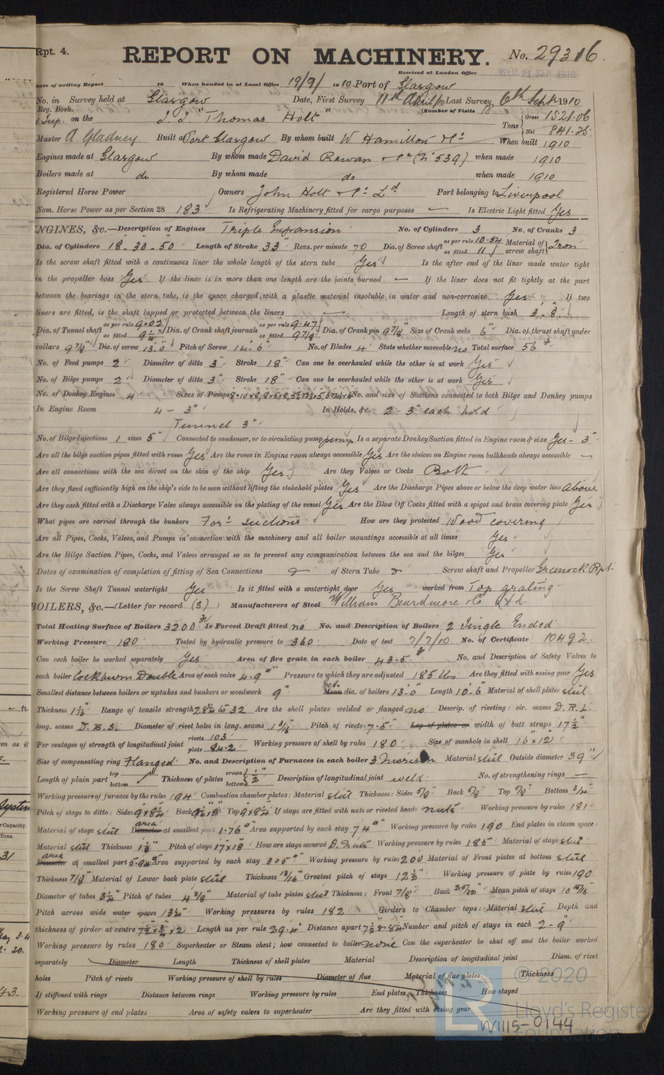 Rpt. 4.
REPORT ON MACHINERY. No. 29316
Received at London Office
Date of writing Report 19 When handed in at Local Office 19/9/ 1910 Port of Glasgow
No. in Survey held at Glasgow Date, First Survey 11th April Last Survey, 6th Sept 1910
Reg. Book. (Number of Visits
Sup. on the "Thomas Holt" Tons Gross 1521.06 Net 841.25
Master A Gladney Built at Port Glasgow By whom built W Hamilton & Co When built 1910
Engines made at Glasgow By whom made David Rowan & Co (No 539) when made 1910
Boilers made at do By whom made do when made 1910
Registered Horse Power Owners John Holt & Co Ld Port belonging to Liverpool
Nom. Horse Power as per Section 28 183 Is Refrigerating Machinery fitted for cargo purposes — Is Electric Light fitted Yes
ENGINES, &c.—Description of Engines Triple Expansion No. of Cylinders 3 No. of Cranks 3
Dia. of Cylinders 18-30-50 Length of Stroke 33" Revs. per minute 70 Dia. of Screw shaft as per rule 10.54 as fitted 11 Material of screw shaft Iron
Is the screw shaft fitted with a continuous liner the whole length of the stern tube Yes Is the after end of the liner made water tight
in the propeller boss Yes If the liner is in more than one length are the joints burned — If the liner does not fit tightly at the part
between the bearings in the stern tube, is the space charged with a plastic material insoluble in water and non-corrosive Yes If two
liners are fitted, is the shaft lapped or protected between the liners — Length of stern bush 3-8"
Dia. of Tunnel shaft as per rule 9.02 as fitted Dia. of Crank shaft journals as per rule 9.47 as fitted 9 7/8 Dia. of Crank pin 9 7/8 Size of Crank webs 6" Dia. of thrust shaft under
collars 9 7/8 Dia. of screw 13.0 Pitch of Screw 14.6 No. of Blades 4 State whether moveable no Total surface 56
No. of Feed pumps 2 Diameter of ditto 3" Stroke 18" Can one be overhauled while the other is at work Yes
No. of Bilge pumps 2 Diameter of ditto 3" Stroke 18" Can one be overhauled while the other is at work Yes
No. of Donkey Engines 4 Sizes of Pumps No. and size of Suctions connected to both Bilge and Donkey pumps
In Engine Room 4 - 3" In Holds, &c. 2 3" each hold
Tunnel 3"
No. of Bilge Injections 1 sizes 5" Connected to condenser, or to circulating pump pump Is a separate Donkey Suction fitted in Engine room & size Yes - 3"
Are all the bilge suction pipes fitted with roses Yes Are the roses in Engine room always accessible Yes Are the sluices on Engine room bulkheads always accessible —
Are all connections with the sea direct on the skin of the ship Yes Are they Valves or Cocks Both
Are they fixed sufficiently high on the ship's side to be seen without lifting the stokehold plates Yes Are the Discharge Pipes above or below the deep water line above
Are they each fitted with a Discharge Valve always accessible on the plating of the vessel Yes Are the Blow Off Cocks fitted with a spigot and brass covering plate Yes
What pipes are carried through the bunkers Ford suctions How are they protected Wood covering
Are all Pipes, Cocks, Valves, and Pumps in connection with the machinery and all boiler mountings accessible at all times Yes
Are the Bilge Suction Pipes, Cocks, and Valves arranged so as to prevent any communication between the sea and the bilges Yes
Dates of examination of completion of fitting of Sea Connections of Stern Tube Screw shaft and Propeller Greenock Rpt.
Is the Screw Shaft Tunnel watertight Yes Is it fitted with a watertight door Yes worked from Top grating
BOILERS, &c.—(Letter for record (S) Manufacturers of Steel William Beardmore & Co Ltd.
Total Heating Surface of Boilers 3200 Is Forced Draft fitted no No. and Description of Boilers 2 Single Ended
Working Pressure 180 Tested by hydraulic pressure to 360 Date of test 7/7/10 No. of Certificate 10492
Can each boiler be worked separately Yes Area of fire grate in each boiler 43.5 No. and Description of Safety Valves to
each boiler Cockburn Double Area of each valve 4.9" Pressure to which they are adjusted 185 lbs Are they fitted with easing gear Yes
Smallest distance between boilers or uptakes and bunkers or woodwork 9" Mean dia. of boilers 13.0 Length 10.6 Material of shell plates steel
Thickness Range of tensile strength 28 to 32 Are the shell plates welded or flanged no Descrip. of riveting: cir. seams D.R.L.
long. seams Diameter of rivet holes in long. seams Pitch of rivets 7.5" Lap of plates or width of butt straps 17 1/2
Per centages of strength of longitudinal joint rivets 103 plate 84.2 Working pressure of shell by rules 180 Size of manhole in shell 16"x12"
Size of compensating ring Flanged No. and Description of Furnaces in each boiler 3 Morison Material steel Outside diameter 39"
Length of plain part top bottom Thickness of plates crown bottom Description of longitudinal joint weld No. of strengthening rings —
Working pressure of furnace by the rules 194 Combustion chamber plates: Material steel Thickness: Sides Back Top Bottom
Pitch of stays to ditto: Sides Back Top If stays are fitted with nuts or riveted heads nuts Working pressure by rules 181
Material of stays steel area Diameter at smallest part 1.76" Area supported by each stay 74 Working pressure by rules 190 End plates in steam space:
Material steel Thickness Pitch of stays 17x18" How are stays secured D. Nuts Working pressure by rules 185 Material of stays steel
area Diameter at smallest part Area supported by each stay 305" Working pressure by rules 200 Material of Front plates at bottom steel
Thickness 7/8 Material of Lower back plate steel Thickness Greatest pitch of stays Working pressure of plate by rules 190
Diameter of tubes 3 1/2 Pitch of tubes Material of tube plates steel Thickness: Front 7/8 Back Mean pitch of stays
Pitch across wide water spaces 13 1/2 Working pressures by rules 182 Girders to Chamber tops: Material steel Depth and
thickness of girder at centre Length as per rule Distance apart Number and pitch of stays in each 2-9"
Working pressure by rules 180 Superheater or Steam chest; how connected to boiler none Can the superheater be shut off and the boiler worked
separately Diameter Length Thickness of shell plates Material Description of longitudinal joint Diam. of rivet
holes Pitch of rivets Working pressure of shell by rules Diameter of flue Material of flue plates Thickness
If stiffened with rings Distance between rings Working pressure by rules End plates: Thickness How stayed
Working pressure of end plates Area of safety valves to superheater Are they fitted with easing gear
© 2020
Lloyd's Register
Foundation
W1115-0144